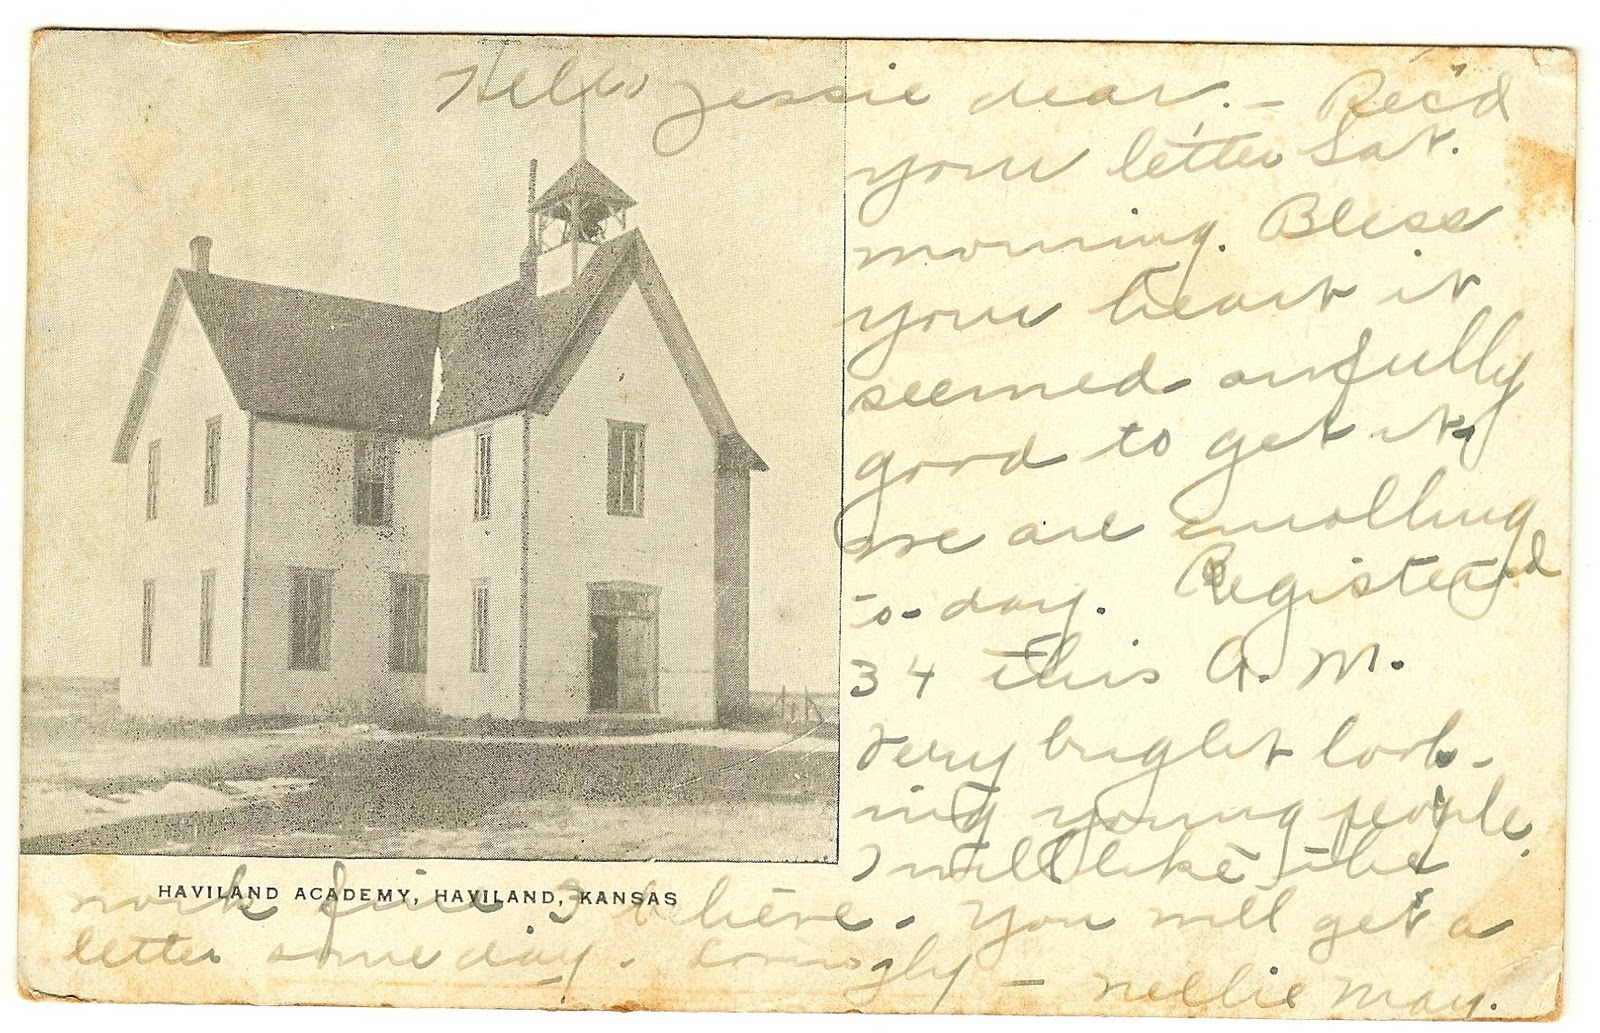 Hello Jessie dear. - Rec'd
your letter Sat.
morning. Bless
your heart it
seemed awfully
good to get it,
we are enrolling
to-day. Registered
34 this A.M.
Very bright look-
ing young people.
I will like the
HAVILAND ACADEMY, HAVILAND, KANSAS
work fine I believe. You will get a
letter some day. Lovingly - Nellie May.